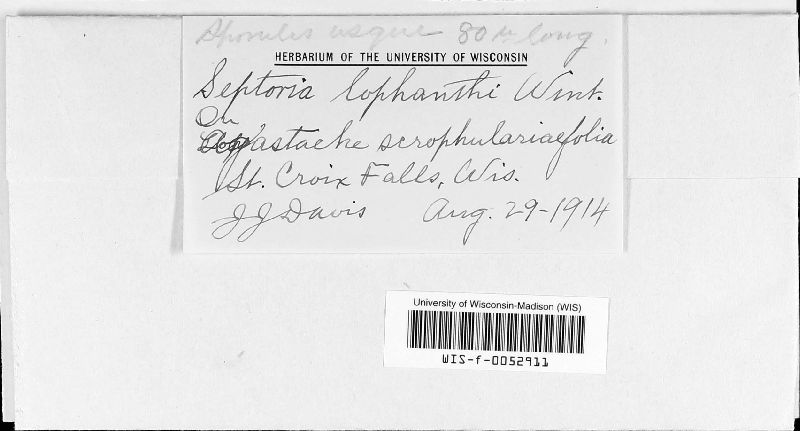 Sporules usque 80 µ long.
HERBARIUM OF THE UNIVERSITY OF WISCONSIN
Septoria lophanthi Wint.
On
Agastache scrophulariaefolia
St. Croix Falls, Wis.
J J Davis Aug. 29-1914
University of Wisconsin-Madison (WIS)
WIS-f-0052911